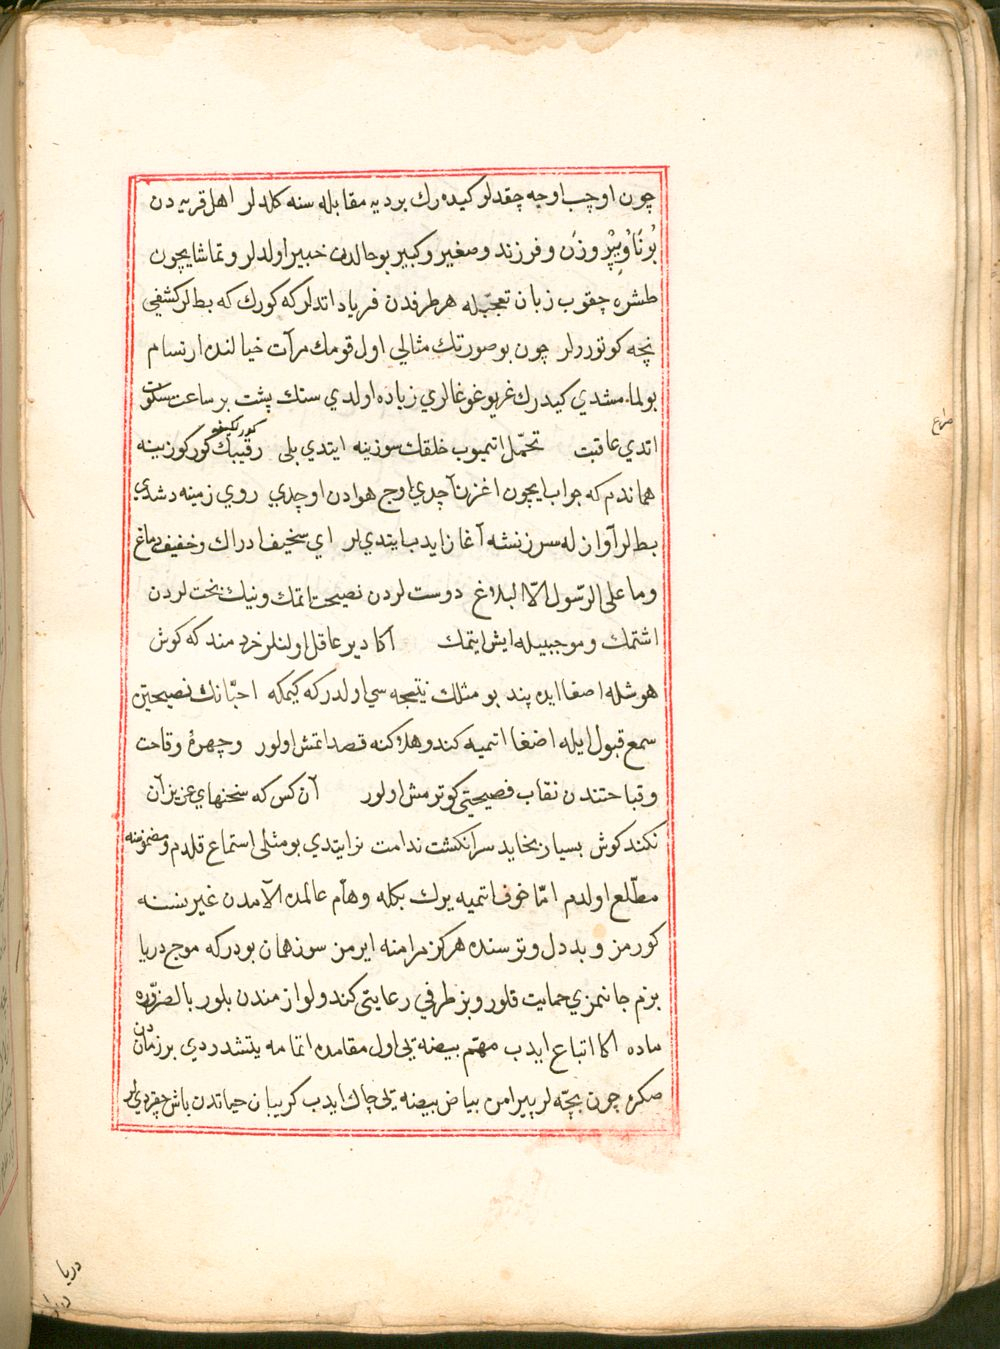 چون اوچب اوجه چقدلر كيده رك بر ديه مقابله سنه كلدلر اهل قريه دن
بُرنَا وُ پِيْر وزَن و فرزند و صغير و كبير بو حالدن خبير اولدلر و تماشا يچون
طشره چقوب زبان تعجّبله هر طرفدن فرياد اتدلر كه كورك كه بطلر كشفي
نچه كوتوررلر چون بو صورتك مثالي اول قومك مرآت خيالنده ارتسام
بولمامشدي كيدرك غريو غوغالري زياده اولدي سنك پشت بر ساعت سكوت
اتدي عاقبت تحمّل اتميوب خلقك سوزينه ايتدي بلى رقيبك كور كوزينه
هماندم كه جواب ايچون اغزن آچدي اوج هوادن اوچدي روي زمينه دشدي
بطلر آواز له سرزنشه آغاز ايدب ايتديلر اي سخيف ادراك و خفيف دماغ
وما على الرّسول الّا البلاغ دوست لردن نصيحت اتمك و نيك بخت لردن
اشتمك و موجبيله ايش ايتمك اكا دير عاقل اولنلر خردمند كه كوش
هوشله اصغا ايده پند بو مثلك نتيجه سي اولدر كه كيمكه احبّانك نصيحتن
سمع قبول ايله اصغا اتميه كندو هلاكنه قصد اتمش اولور و چهرهٔ وقاحت
و قباحتندن نقاب فصيحتى كوترمش اولور آن كس كه سخنهاي عزيزآن
نكند كوش بسيار بخايد سر انكشت ندامت نر ايتدي بو مثلى استماع قلدم و مضموننه
مطّلع اولدم امّا خوف اتميه يرك بكله وهآم عالمده الآمدن غير نسنه
كورمز و بددل و ترسنده هركز مرامنه ايرمز سوز همان بودر كه موج دريا
بزم جانبمزي حمايت قلور و بز طرفي رعايتى كندو لوازمندن بلور بالضرّوره
ماده اكا اتباع ايدب مهتم بيضه يى اول مقامده اتمامه يتشدردي بر زماندن
صكره چون بچّه لر پيرامن بياض بيضه يى چاك ايدب كريبان حياتدن باش چقرديلر
دريا